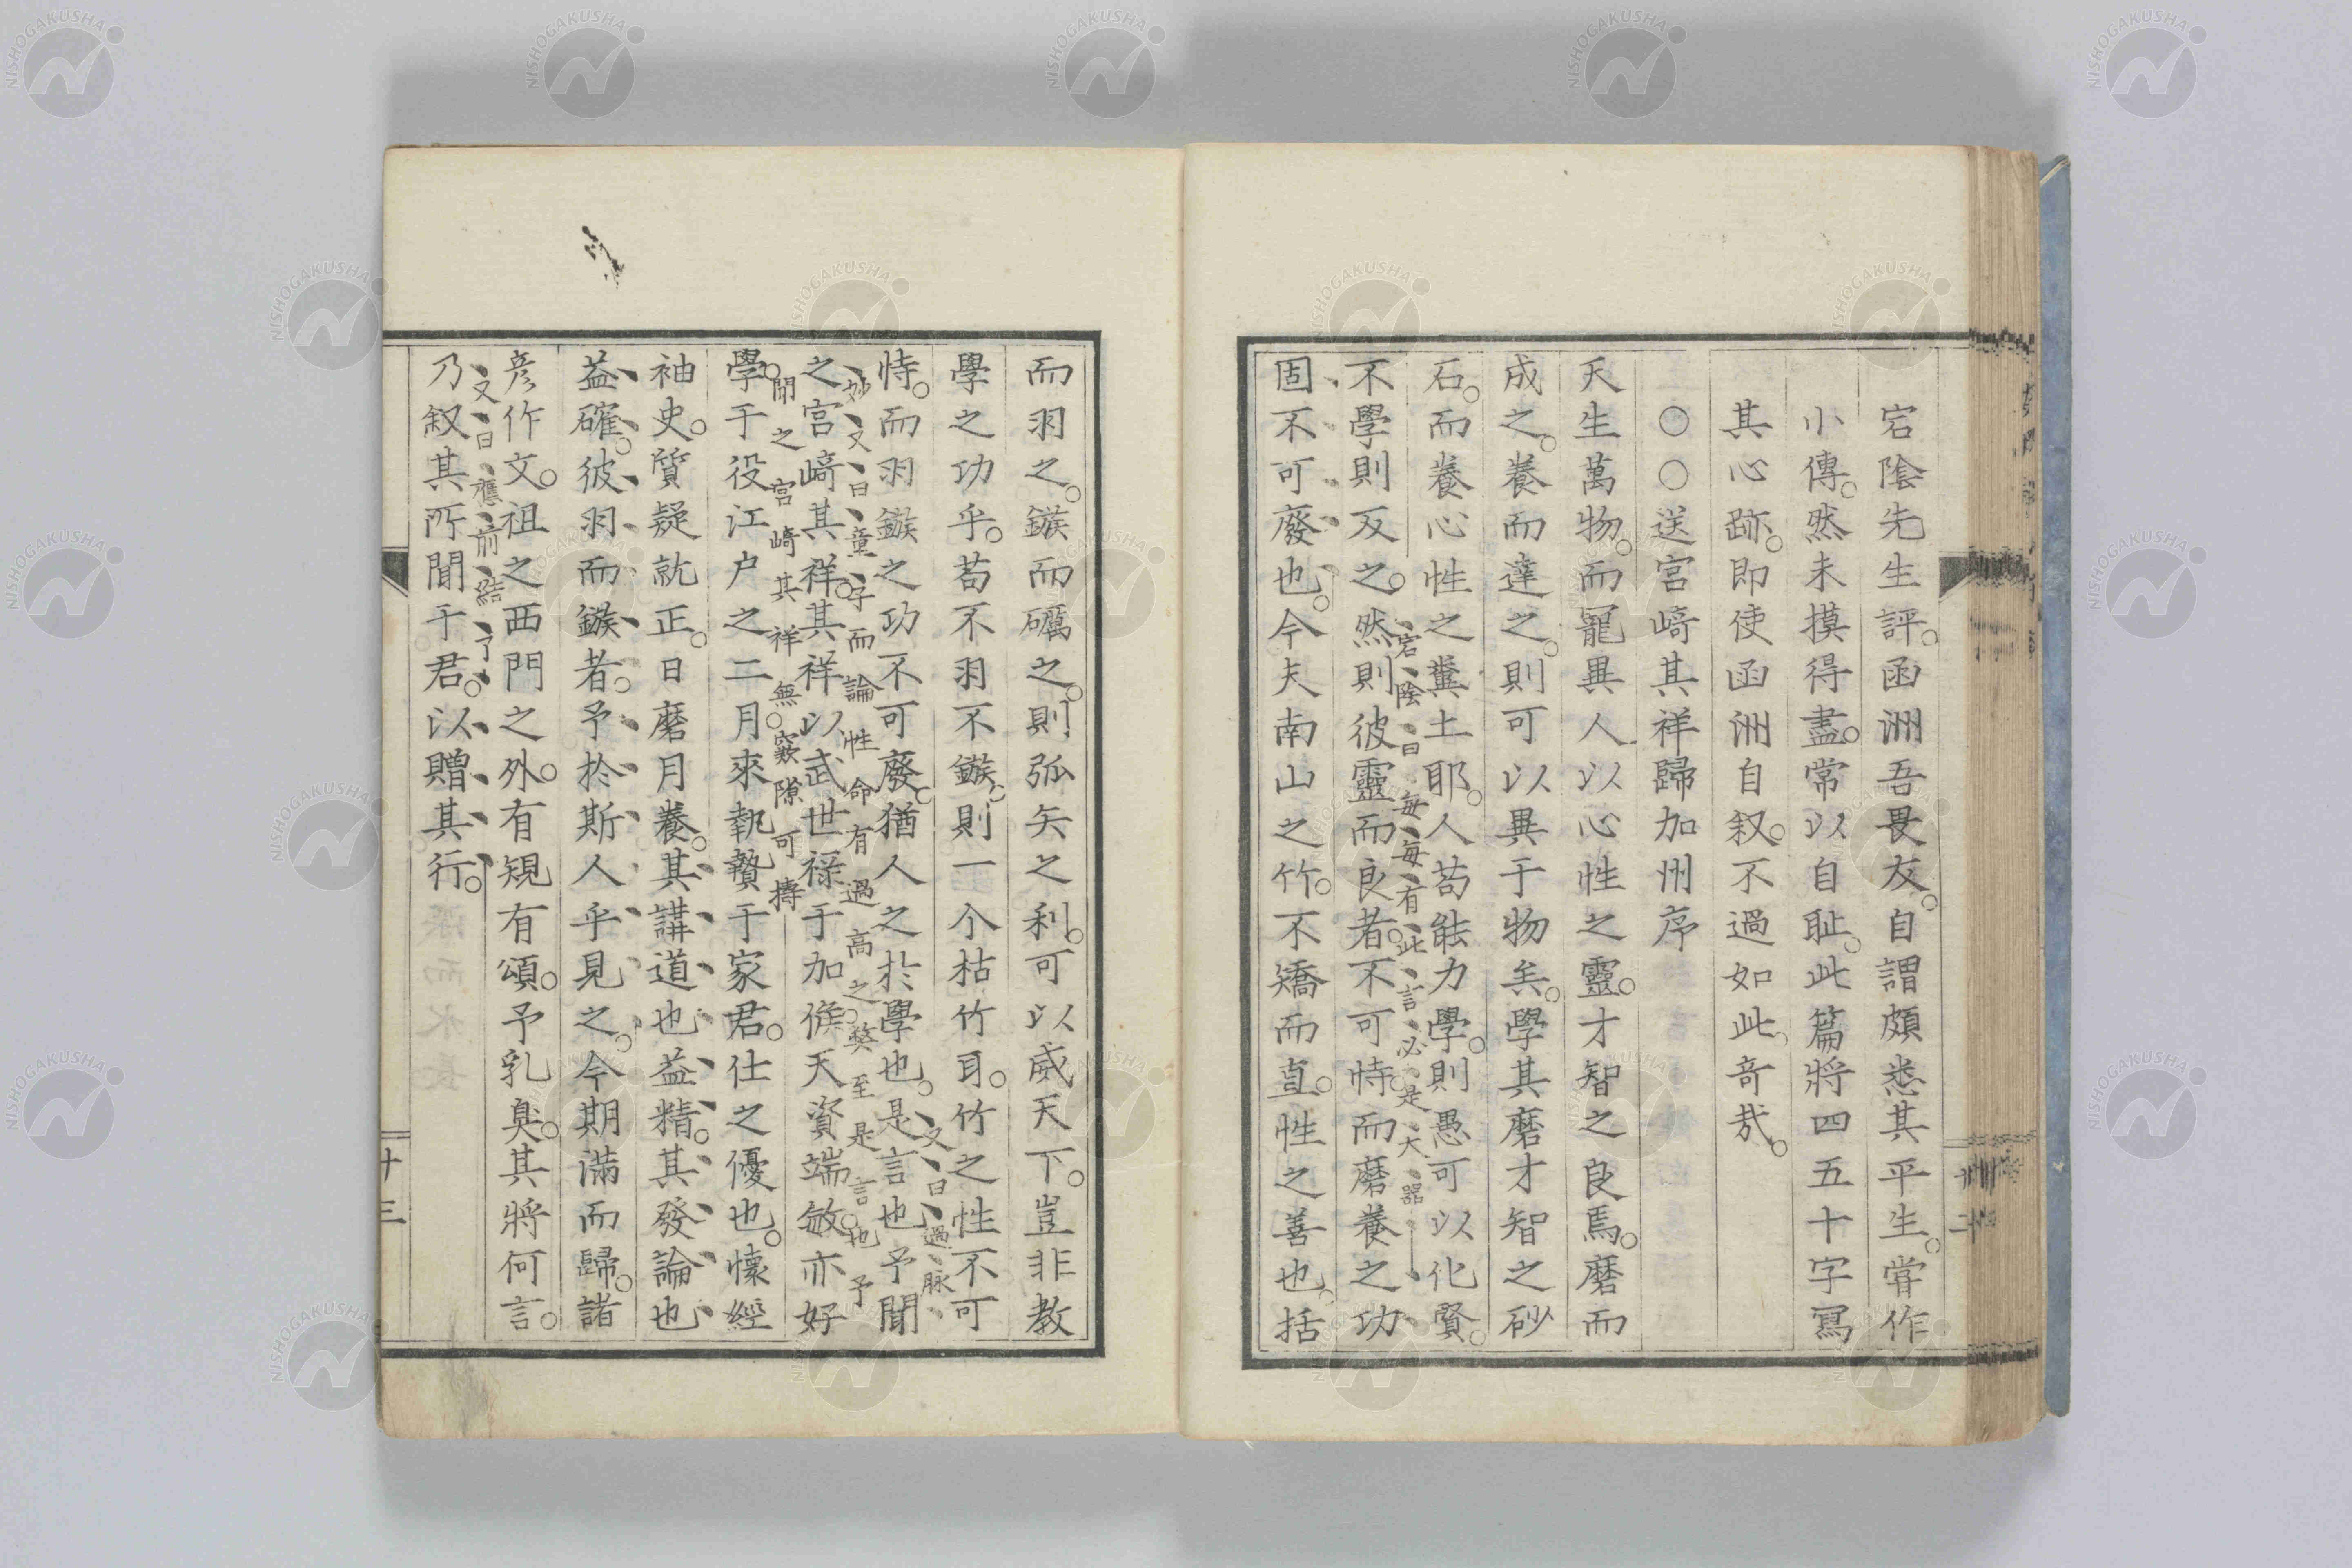 宕陰先生評。函洲吾畏友。自謂頗悉其平生。嘗作
小傳。然未摸得盡。常以自耻。此篇將四五十字寫
其心跡。即使函洲自叙。不過如此。奇哉。
○○送宮﨑其祥歸加州序
天生萬物。而寵異人以心性之靈。才智之良焉。磨而
成之。養而達之。則可以異于物矣。學其磨才智之砂
石。而養心性之糞土耶。人苟能力學。則愚可以化賢。
不學則反之。然則彼靈而良者。不可恃。而磨養之功
宕陰曰每每有此言必是大器
固不可廢也。今夫南山之竹。不矯而直。性之善也、括
而羽之。鏃而礪之。則弧矢之利。可以威天下。豈非教
學之功乎。苟不羽不鏃。則一个枯竹耳。竹之性不可
又曰過脉
恃。而羽鏃之功不可廢。猶人之於學也。是言也予聞
妙又曰童子而論性命有過高之獘至是言。也予
之宮﨑其祥。其祥以武世祿于加候天資端敏亦好
聞之宮﨑其祥無窾隙可擣
學。于役江户之二月。來執贄于家君。仕之優也。懷經
袖史。質疑就正。日磨月養。其講道也益精。其發論也
益確。彼羽而鏃者。予於斯人乎見之。今期滿而歸。諸
彦作文。祖之西門之外。有規有頌。予乳臭。其將何言。
又曰應前結了
乃叙其所聞于君。以贈其行。
十三
NISHOGAKUSHA